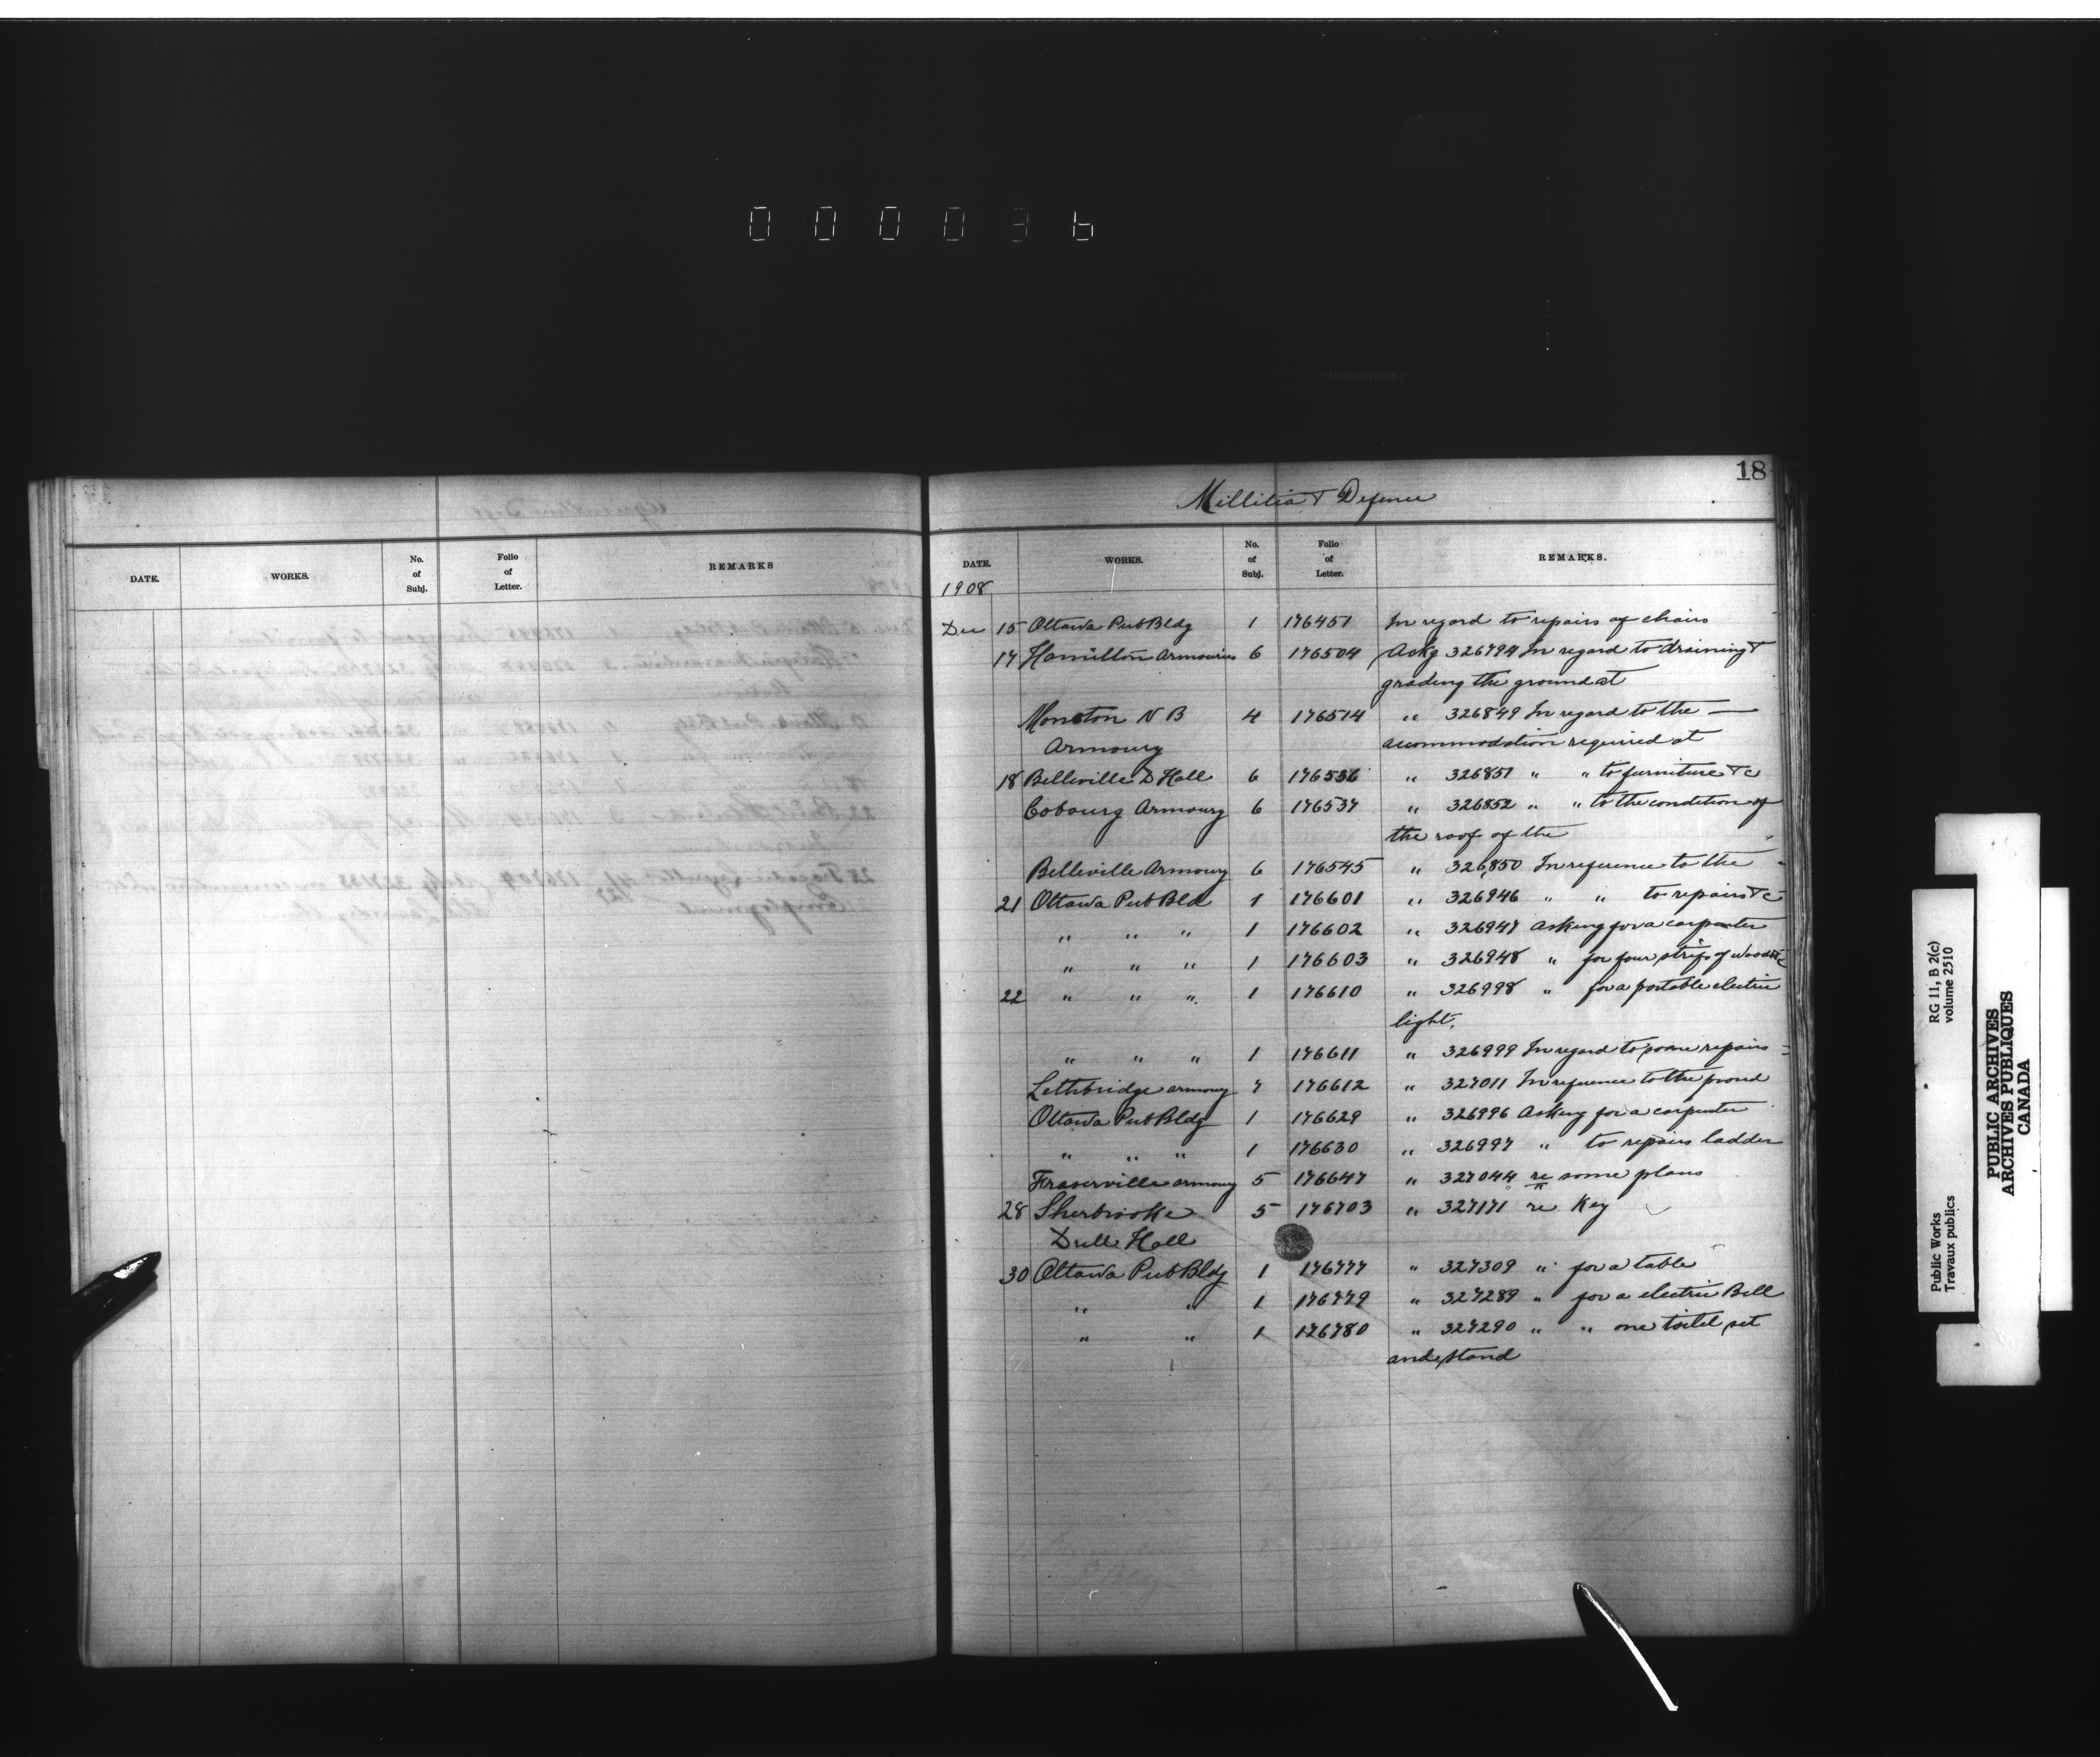 000036
18
Millitia & Defence
DATE. WORKS. No. of Subj. Folio of Letter. REMARKS
DATE. WORKS. No. of Subj. Folio of Letter. REMARKS.
1908
Dec 15 Ottawa Pub Bldg 1 176451 In regard to repairs of chairs
17 Hamilton Armouries 6 176504 Ackg 326794 In regard to draining &
grading the ground at
Moncton N B 4 176514 " 326849 In regard to the —
Armoury accommodation required at
18 Belleville D Hall 6 176536 " 326851 " " to furniture &c
Cobourg Armoury 6 176537 " 326852 " " to the condition of
the roof of the "
Belleville Armoury 6 176545 " 326850 In reference to the -
21 Ottawa Pub Bld 1 176601 " 326946 " " to repairs &c
" " " 1 176602 " 326947 Asking for a carpenter
" " " 1 176603 " 326948 " for four strips of wood &c
22 " " " 1 176610 " 326998 " for a portable electric
light.
" " " 1 176611 " 326999 In regard to some repairs
Lethbridge armoury 7 176612 " 327011 In reference to the
Ottawa Pub Bldg 1 176629 " 326996 Asking for a carpenter
" " " 1 176630 " 326997 " to repairs ladder
Fraserville armoury 5 176647 " 327044 re some plans
28 Sherbrooke 5 176703 " 327171 re Key
Drill Hall
30 Ottawa Pub Bldg 1 176777 " 327309 " for a table
" " 1 176779 " 327289 " for a electric Bell
" " 1 176780 " 327290 " " one toilet set
and stand
Public Works RG 11, B 2(c)
Travaux publics volume 2510
PUBLIC ARCHIVES
ARCHIVES PUBLIQUES
CANADA